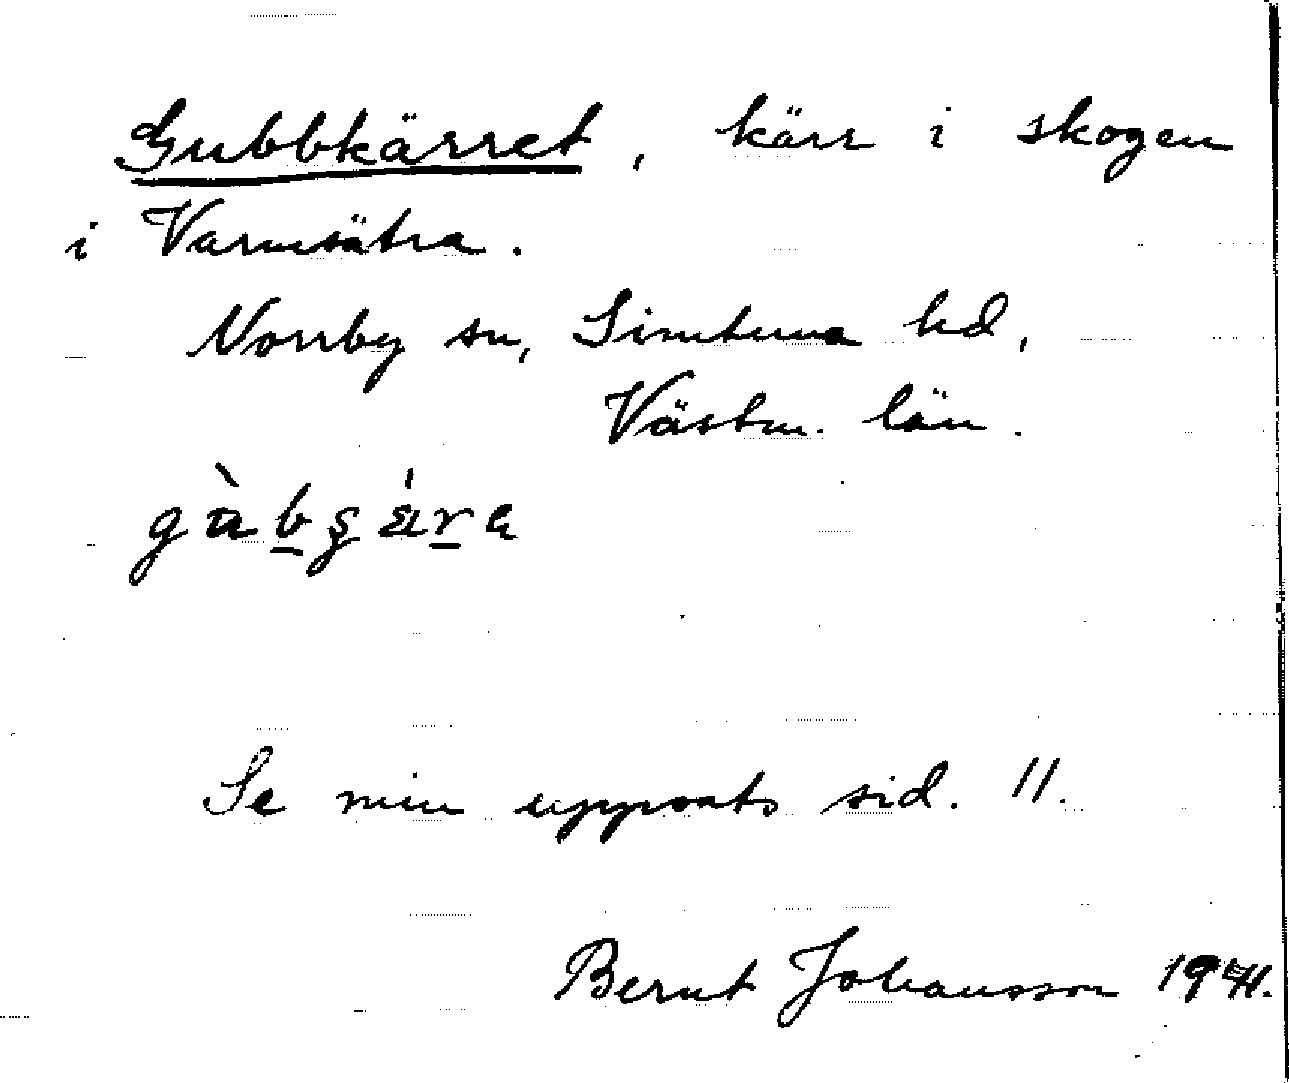 Gubbkärret, kärr i skogen
i Varmsätra.
Norrby sn, Simtuna hd,
Västm. län.
Se min uppsats sid. 11.
Bernt Johansson 1941.